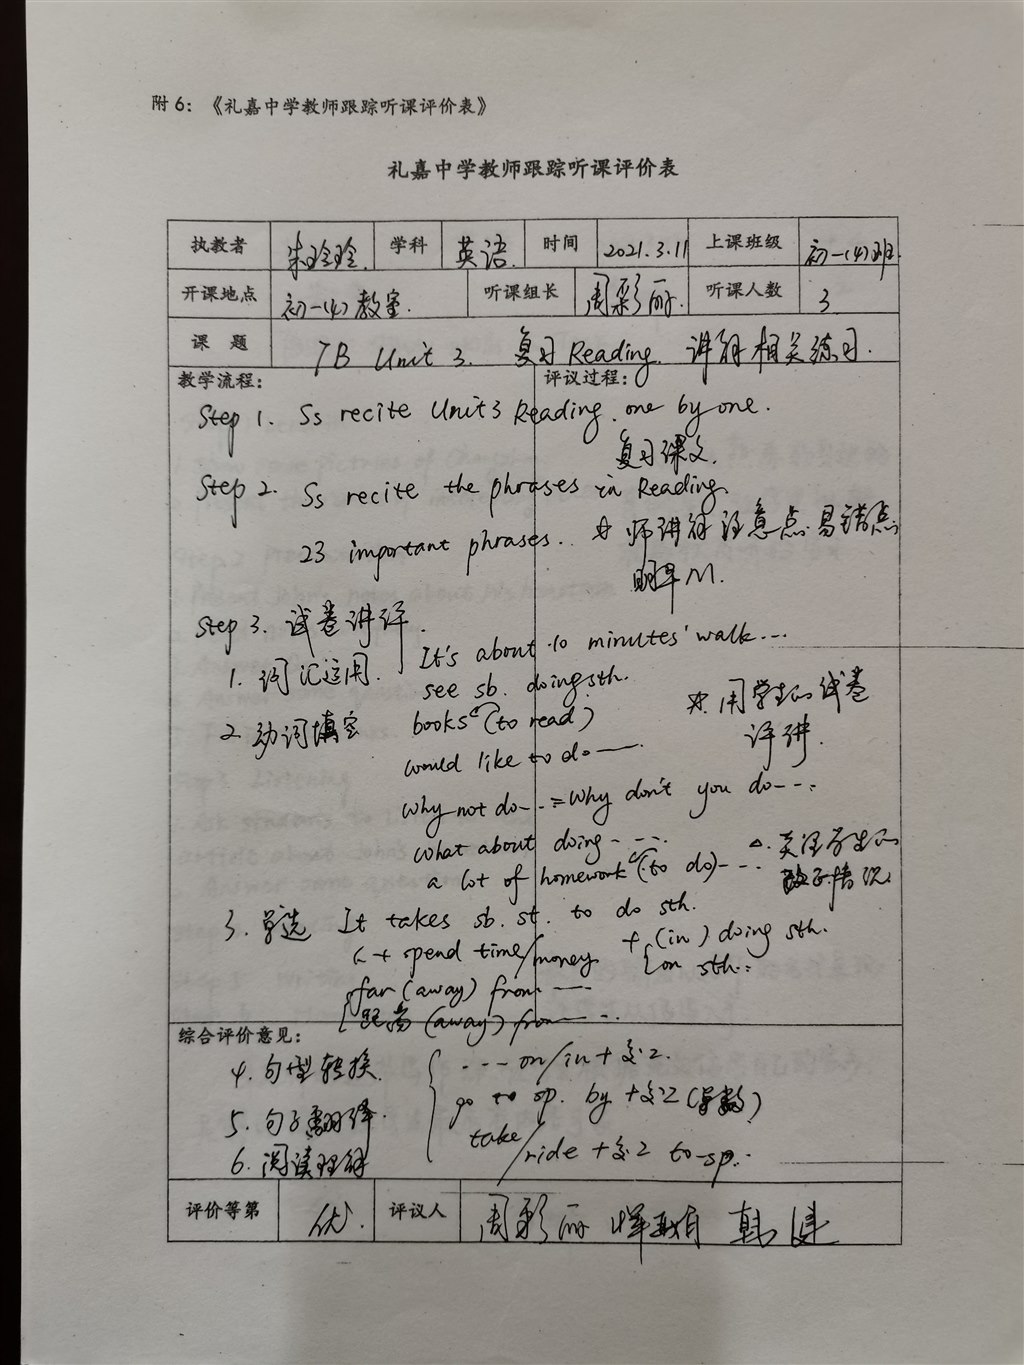 附 6：《礼嘉中学教师跟踪听课评价表》
礼嘉中学教师跟踪听课评价表
执教者 朱玲玲. 学科 英语. 时间 2021.3.11 上课班级 初一(4)班.
开课地点 初一(4)教室. 听课组长 周彩丽. 听课人数 3
课 题 7B Unit 3. 复习Reading. 讲解相关练习.
教学流程： 评议过程：
Step 1. Ss recite Unit3 Reading. one by one.
复习课文.
Step 2. Ss recite the phrases in Reading.
23 important phrases. ☆ 师讲解注意点.易错点
Step 3. 试卷讲评.
It's about 10 minutes' walk...
1. 词汇运用.
see sb. doing sth.
☆. 用学生的试卷
2. 动词填空 books (to read)
评讲.
would like to do —.
Why not do--- = Why don't you do---
What about doing ----
△. 关注学生的
a lot of homework (to do)---
3. 单选 It takes sb. st. to do sth.
人+ spend time/money + (in) doing sth.
on sth..
far (away) from ---
距离 (away) from ---
综合评价意见：
4. 句型转换. --- on/in + 交工.
go to sp. by + 交工 (单数)
5. 句子翻译.
take/ride + 交工 to sp.
6. 阅读理解
评价等第 优. 评议人 周彩丽 韩